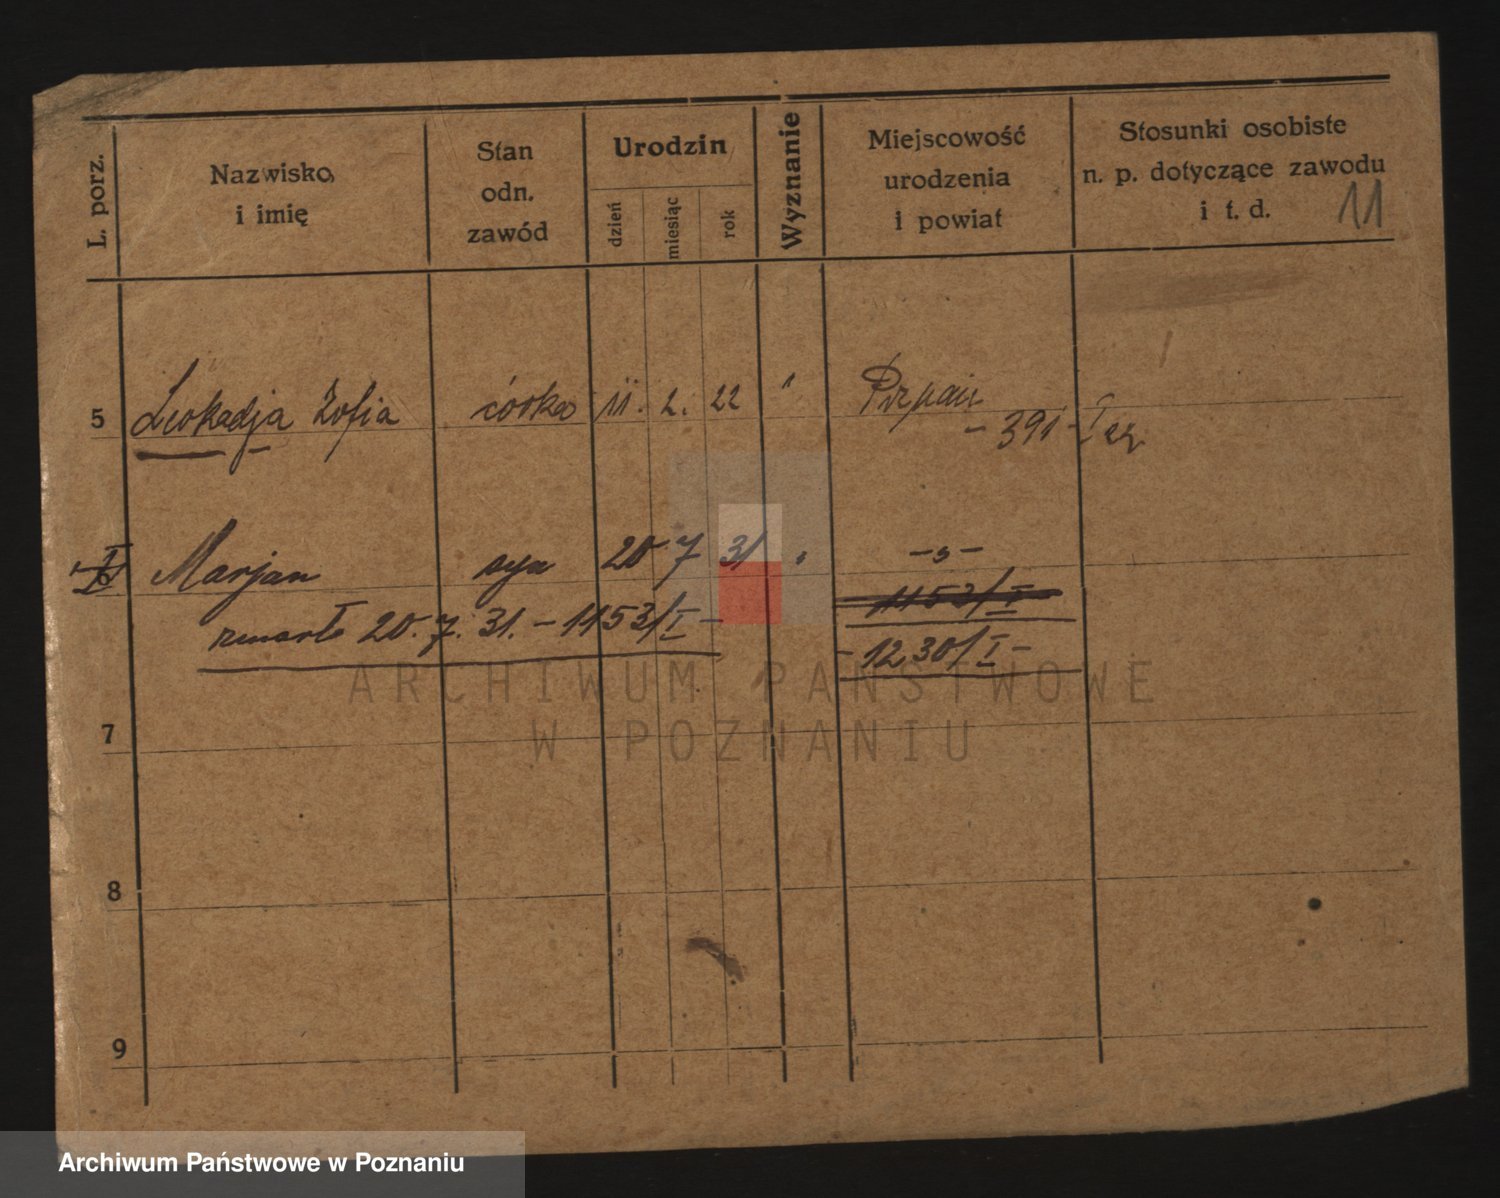 L. porz.
Nazwisko,
i imię
Stan
odn.
zawód
Urodzin
dzień
miesiąc
rok
Wyznanie
Miejscowość
urodzenia
i powiat
Stosunki osobiste
n. p. dotyczące zawodu
i t. d.
11
5 Leokadja Zofia córka 11. 2. 22 "
- 391 - I
Marjan syn 20 7 31 "
zmarł 20. 7. 31. - 1153/I -
1153/I
- 1230/I -
ARCHIWUM PAŃSTWOWE
W POZNANIU
7
8
9
Archiwum Państwowe w Poznaniu